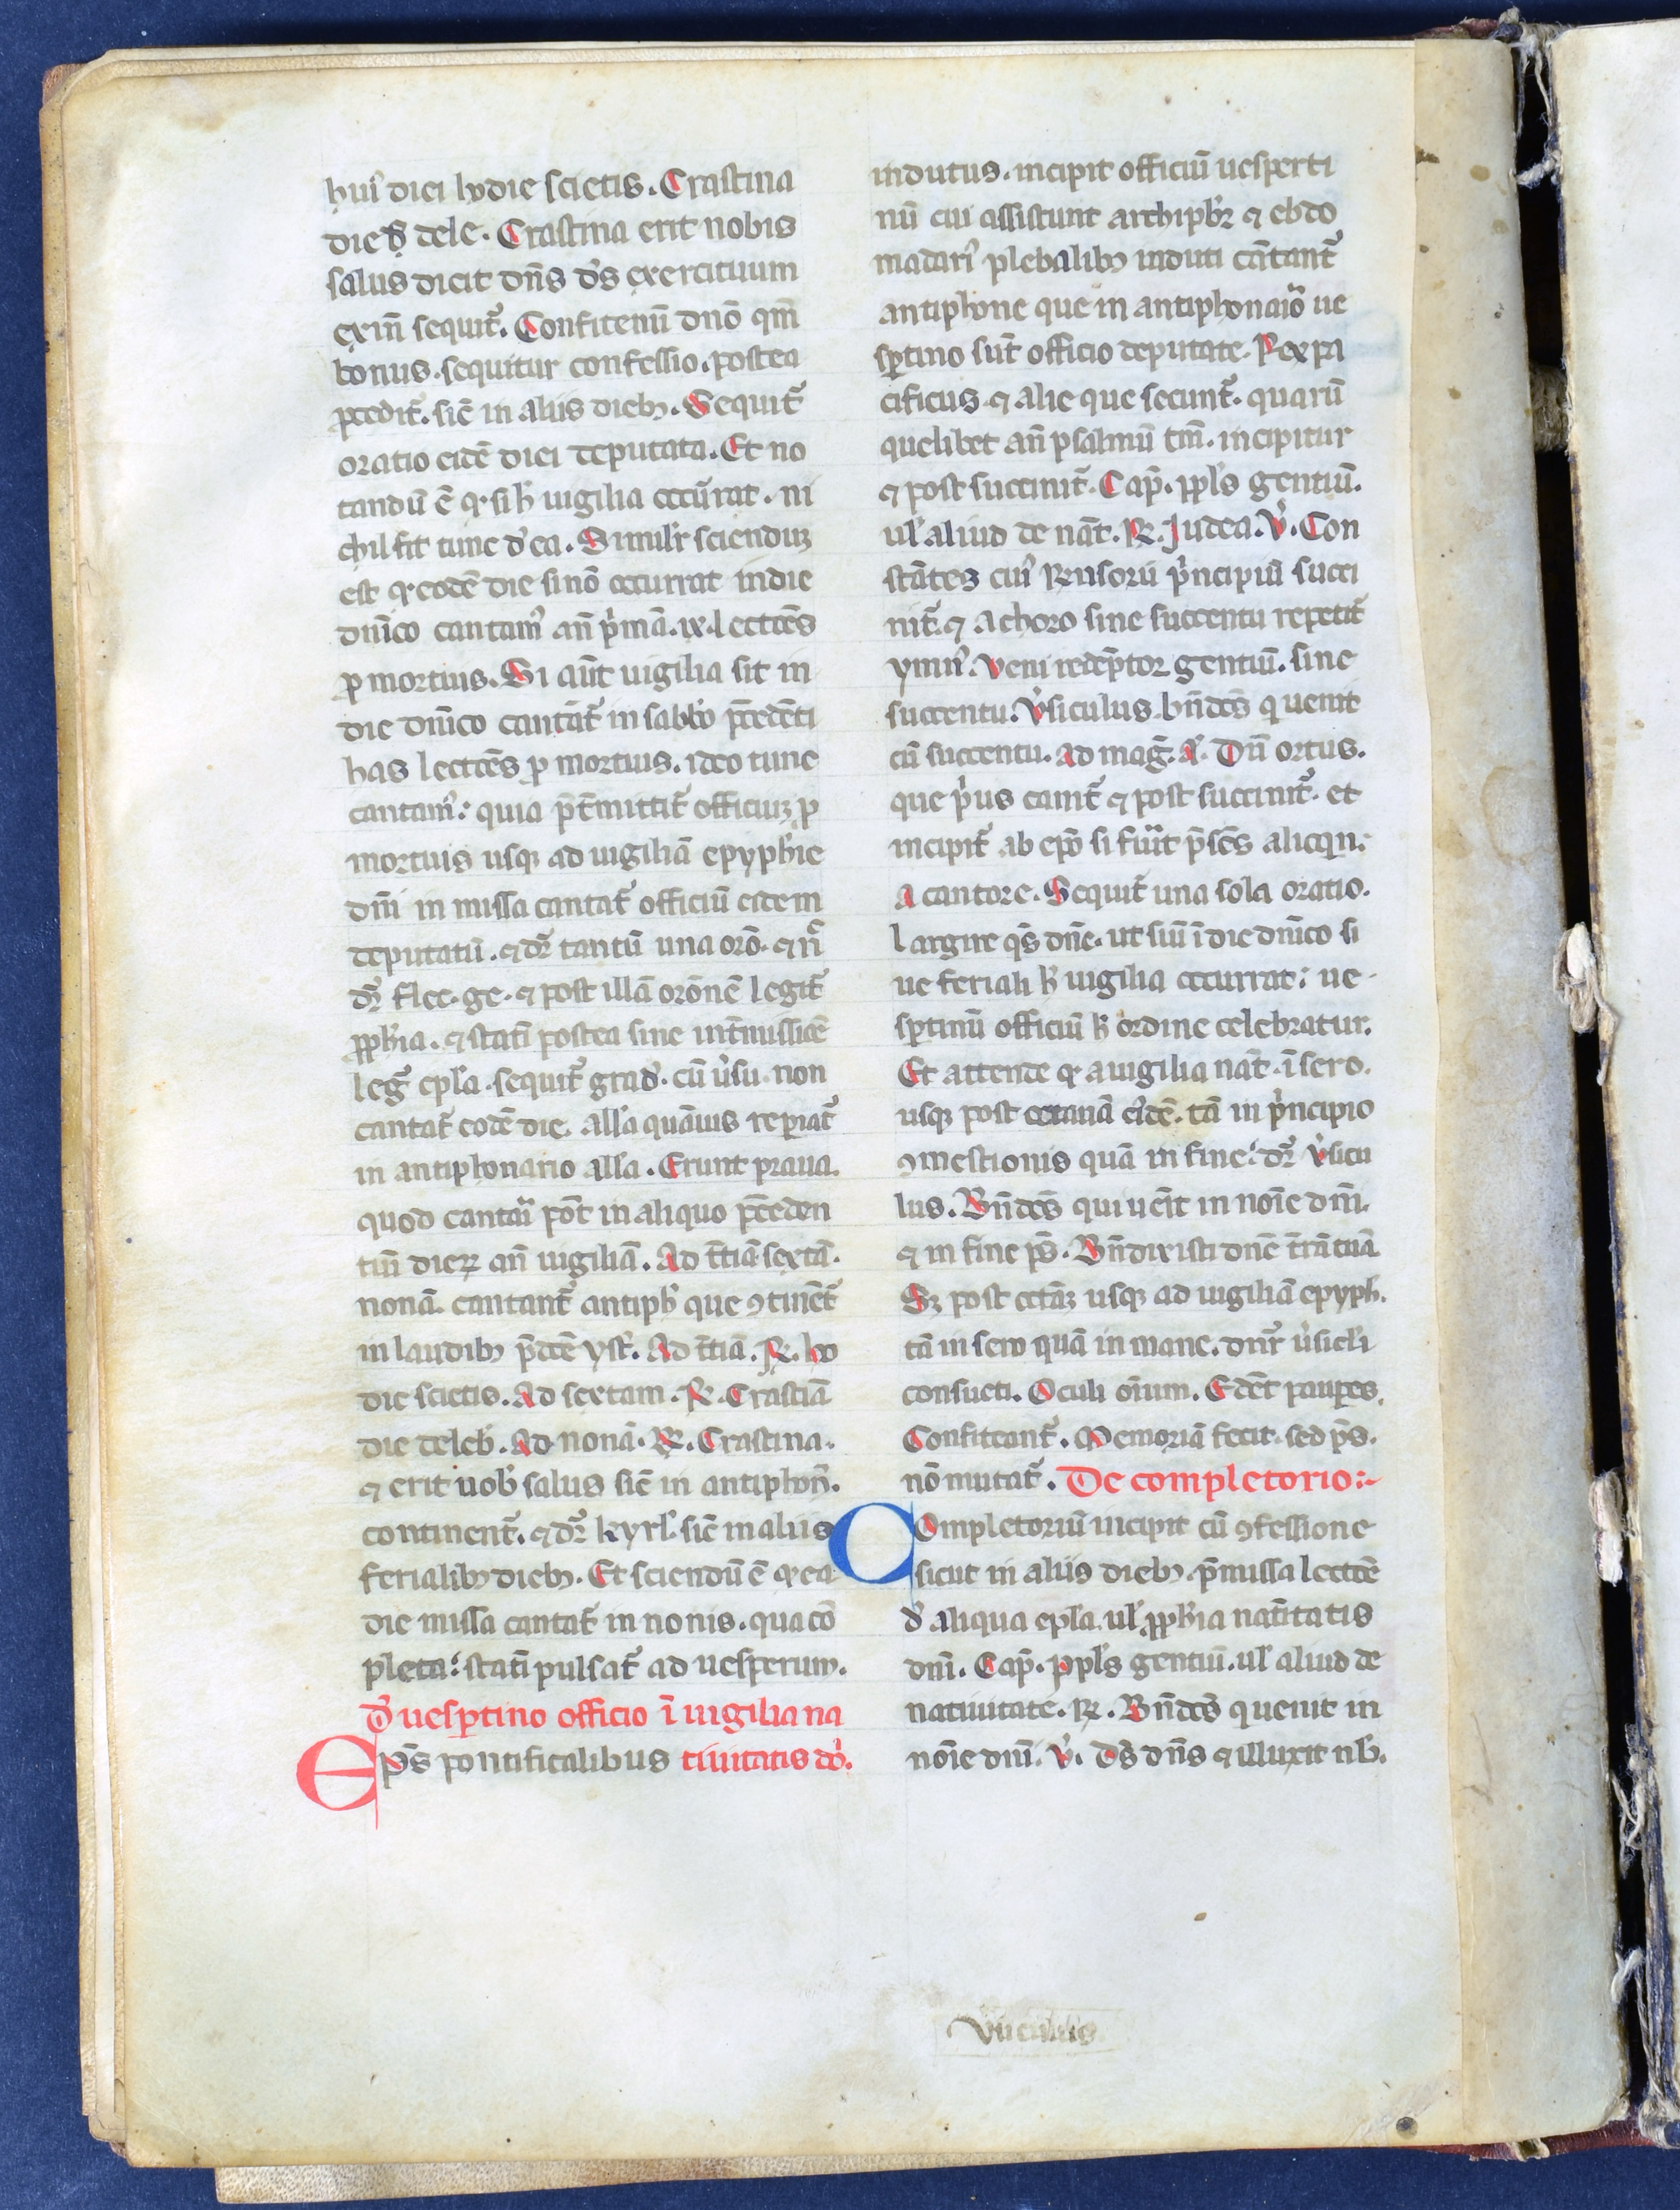 huiꝰ diei hodie scietis. Crastina
die đ dele. Crastina erit nobis
salus dicit dn̄s dꝰs exercituum
exin̄ sequit᷑. Confitemī dn̄o qm̄
bonus. sequitur confessio. postea
ꝓcedit᷑. sic̄ in aliis dieb₉. Sequit᷑
oratio eidē diei deputata. Et no
tandū ē ꝙ si h̄ uigilia occurrat. ni
chil fit tunc dʼ ea. Simil'r scienduꝫ
est ꝙ eodē die si nō occurrat in die
dn̄ico cantamꝰ an̄ pͥmā .ix. lectōēs
ꝓ mortuis. Si aūt uigilia sit in
die dn̄ico cantāt᷑ in sabb'o p̄cedēti
has lectōēs ꝓ mortuis. ideo tunc
cantamꝰ: quia p̄t̄mittit᷑ officiuꝫ ꝓ
mortuis usqꝫ ad uigiliā epyph'ie
dn̄i in missa cantat᷑ officiū eidem
deputatū. ⁊ dr̄ tantū una orō. ⁊ n̄
dr̄ flec. ge. ⁊ post illā orōnē legit᷑
ꝓph'ia. ⁊ statī postea sine int̄missiōe
leg᷑ ep'la. sequit᷑ grad'. cū ůsu. non
cantat᷑ eodē die. all'a quāuis reꝑiat᷑
in antiphonario all'a. Erunt praua.
quod cantari pōt in aliquo p̄ceden
tiū dieꝝ an̄ uigiliā. Ad t̄tiā sextā.
nonā. cantant᷑ antiph' que ꝯtinēt᷑
in laudib₉ p̄dcē yst'. Ad t̄tiā. ℟. ho
die scietis. Ad sextam. ℟. Crastīa
die deleb'. Ad nonā. ℟. Crastina.
⁊ erit uob' salus sic̄ in antiphon'.
continent᷑. ⁊ dr̄ kyrl'. sic̄ in aliis
ferialib₉ dieb₉. Et sciendū ē ꝙ ea
die missa cantat᷑ in nonis. qua cō
pleta: statī pulsat᷑ ad uesperum.
Dʼ uesꝑtino officio ī uigilia na
Ep̄s pontificalibus tiuitatis do'.
indutus. incipit officiū uesperti
nū cui assistunt archipb'r ⁊ ebdo
madarͥ plebalib₉ induti cātant᷑
antiphone que in antiphonaͥo ue
sꝑtino sūt officio deputate. Rex pa
cificus. ⁊ alie que secunt᷑. quarū
quelibet an̄ psalmū tm̄. incipitur
⁊ post succinit᷑. Cap̄. ppl's gentiū.
ul' aliud de nāt. ℟. Judea. ℣. Con
stātes cuiꝰ ℟nsorū pͥncipiū succi
nit᷑. ⁊ a choro sine succentu repetit᷑
ymnꝰ. Veni redēptor gentiū. sine
succentu. Vˀsiculus. bn̄dc̄s q uenit
cū succentu. Ad mag̅. A'. Dū ortus.
que pͥus canit᷑ ⁊ post succinit᷑. et
incipit᷑ ab ep̄o si fuīt p̄sēs alioqn:
a cantore. Sequit᷑ una sola oratio.
Largire qs̄ dn̄e. ut siū ī die dn̄ico si
ue feriali h̄ uigilia occurrat: ue
sꝑtinū officiū h̄ ordine celebratur.
Et attende ꝙ a uigilia nāt. ī sero.
usqꝫ post octauā eiꝰdē. tā in pͥncipio
ꝯmestionis quā in fine: dr̄ vˀsicu
lus. Bn̄dc̄s qui uēit in noīe dn̄i.
⁊ in fine ps̄. Bn̄dixisti dn̄e t̄rā tuā
Sꝫ post octāꝫ usqꝫ ad uigiliā epyph.
tā in sero quā in mane. dn̄r ůsicl'i
consueti. Oculi oīum. Edēt pauꝑes.
Confiteant᷑. Memoriā fecit. sed ps̄.
nō mutat᷑. De completorio:~
Completoriū incipit cū ꝯfessione
sicut in aliis dieb₉. p̄missa lectōē
dʼ aliqua ep'la. ul' ꝓph'ia natītatis
dn̄i. Cap̄. ppl's gentiū. ul' aliud de
natiuitate. ℟. Bn̄dc̄s q uenit in
noīe dn̄i. ℣. Dꝰs dn̄s ⁊ illuxit nb'.